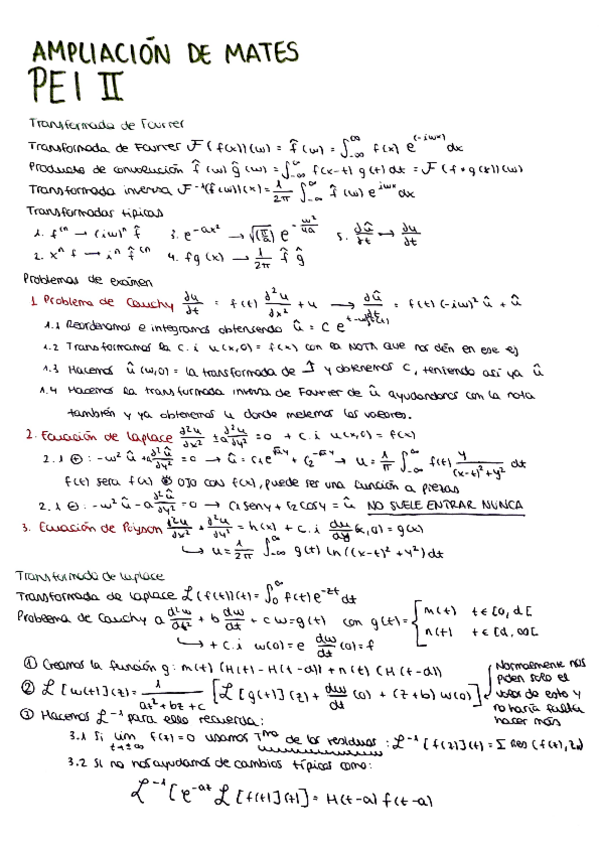 AMPLIACIÓN DE MATES
PEI II
Transformada de Fourier
Transformada de Fourier F(f(x))(ω) = f̂(ω) = ∫_{-∞}^{∞} f(x) e^{(-iωx)} dx
Producto de convolución f̂(ω) ĝ(ω) = ∫_{-∞}^{∞} f(x-t) g(t) dt = F(f∗g(x))(ω)
Transformada inversa F⁻¹(f̂(ω))(x) = 1/2π ∫_{-∞}^{∞} f̂(ω) e^{iωx} dx
Transformadas típicas
1. fⁿ → (iω)ⁿ f̂ 3. e^{-ax²} → √(π/a) e^{-ω²/4a} 5. ∂û/∂t ↔ ∂u/∂t
2. xⁿ f → iⁿ f̂⁽ⁿ 4. fg(x) → 1/2π f̂ ĝ
Problemas de exámen
1. Problema de Cauchy ∂u/∂t = f(t) ∂²u/∂x² + u → ∂û/∂t = f(t)(-iω)² û + û
1.1 Reordenamos e integramos obteniendo û = C e
1.2 Transformamos la c.i u(x,0) = f(x) con la NOTA que nos dén en ese ej
1.3 Hacemos û(ω,0) = la transformada de ↑ y obtenemos C, teniendo así ya û
1.4 Hacemos la transformada inversa de Fourier de û ayudandonos con la nota
también y ya obtenemos u donde metemos los valores.
2. Ecuación de Laplace ∂²u/∂x² ± a ∂²u/∂y² = 0 + c.i u(x,0) = f(x)
2.1 ⊕: -ω² û + a ∂²û/∂y² = 0 → û = C₁e + C₂ → u = 1/π ∫_{-∞}^{∞} f(t) y/((x-t)²+y²) dt
f(t) será f(x) OJO con f(x), puede ser una función a piezas
2.1 ⊖: -ω² û - a ∂²û/∂y² = 0 → C₁ sen y + C₂ cos y = û NO SUELE ENTRAR NUNCA
3. Ecuación de Poyson ∂²u/∂x² + ∂²u/∂y² = h(x) + c.i du/dy (x,0) = g(x)
↳ u = 1/2π ∫_{-∞}^{∞} g(t) ln((x-t)² + y²) dt
Transformada de laplace
Transformada de laplace L(f(t))(z) = ∫₀^∞ f(t) e^{-zt} dt
Problema de Cauchy a d²w/dt² + b dw/dt + cw = g(t) con g(t) = { m(t) t∈[0,d[
n(t) t∈[d,∞[
↳ + c.i w(0) = e dw/dt (0) = f
① Creamos la función g: m(t) (H(t) - H(t-d)) + n(t) (H(t-d))
② L[w(t)](z) = 1/(az²+bz+c) [L[g(t)](z) + dw/dt (0) + (z+b) w(0)]
Normalmente nos
piden solo el
valor de esto y
no haría falta
hacer más
③ Hacemos L⁻¹ para ello recuerda:
3.1 Si lim_{t→±∞} f(z) = 0 usamos Tᵐᵃ de los residuos: L⁻¹[f(z)](t) = Σ Res(f(t), zₙ)
3.2 Si no nos ayudamos de cambios típicos como:
L⁻¹[e^{-at} L[f(t)](z)] = H(t-a) f(t-a)